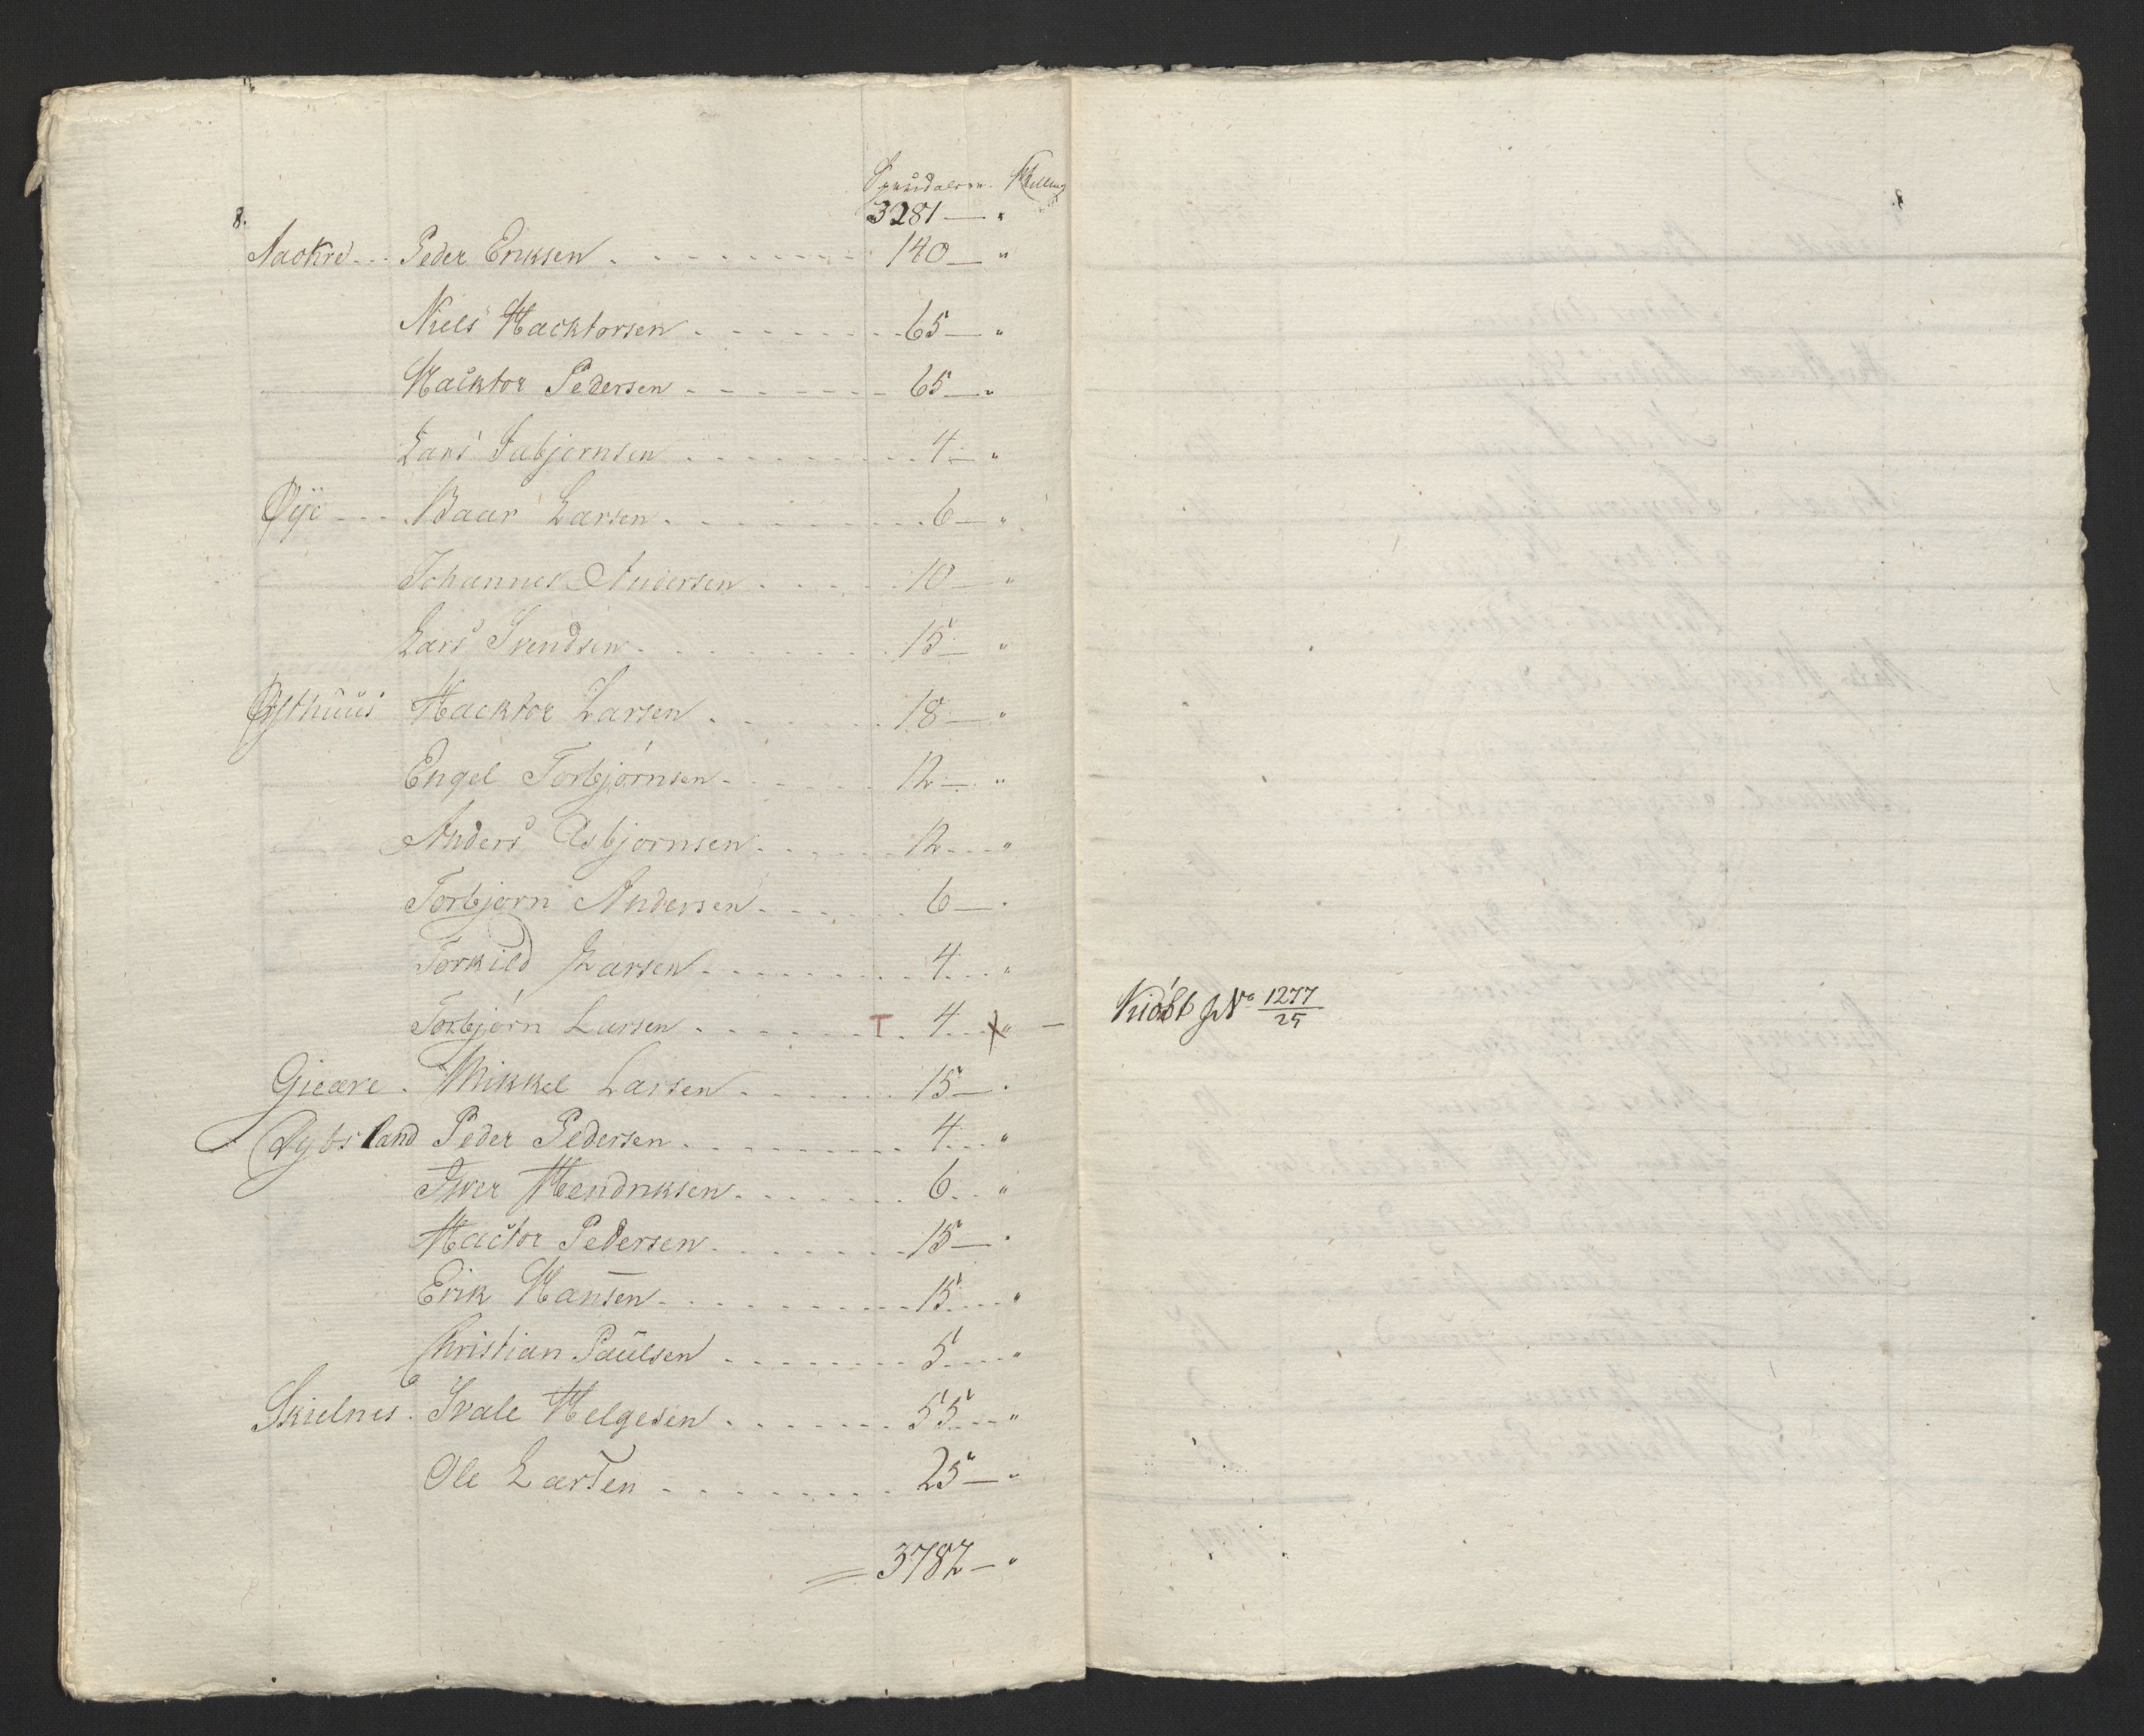 Speciedaler. Skilling
8. 3281 — "
Aackre - - Peder Eriksen . - - - - - - - 140 — "
Niels Hacktorsen . - - - - - - 65 — "
Hacktor Pedersen - - - - - - - 65 — "
Lars Asbjørnsen . . . . . . . . 4 — "
Øÿe - - - Baar Larsen . . . . . . . . 6 — "
Johannes Andersen . . . . . 10 — "
Lars Svendsen . . . . . . . 15 — "
Østhuus Hacktor Larsen . . . . . . 18 — "
Engel Torbjørnsen - . . . . . 12 — "
Anders Asbjørnsen . . . . . . 12 - - - "
Torbjørn Andersen . . . . . . 6 — "
Torkild Larsen . . . . . . . . 4 . . . "
Torbjørn Larsen . . . . . . . T . 4 . . . X " —
Gieære . Mikkel Larsen . . . . . . . 15 — "
Dybsland Peder Pedersen . . . . . . . . 4 . . . "
Iver Hendriksen . . . . . . . 6 . . . "
Hactor Pedersen . . . . . . . 15 — "
Erik Hansen . . . . . . . . . 15 . . . "
Christian Paulsen . . . . . . . 5 . . . "
Skielnes . Svale Helgesen . . . . . . . 55 . . . "
Ole Larsen . . . . . . . . . 25 — "
= 3782 — "
Kiøbt No 1277/25